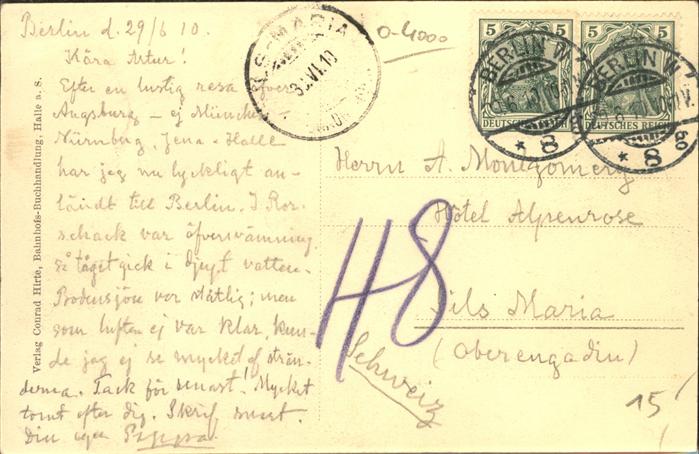 Berlin d. 29/6 10.
Kära Artur!
Efter en lustig resa öfver
Augsburg – ej München
Nürnberg, Jena – Halle
har jag nu lyckligt an-
ländt till Berlin. I Ror-
schack var öfversvämning
så tåget gick i djupt vatten.
Bodensjön var ståtlig; men
som luften ej var klar kun-
de jag ej se mycket af strän-
derna. Tack för senast! Mycket
tomt efter dig. Skrif snart.
Din egen
Verlag Conrad Hirte, Bahnhofs-Buchhandlung, Halle a. S.
SILS-MARIA
30.VI.10
0-4000
5 5
DEUTSCHES REICH
5 5
DEUTSCHES REICH
BERLIN W
* 8
BERLIN W
* 8
Herrn A. Montgomery
Hôtel Alpenrose
Sils Maria
(Oberengadin)
Schweiz
48
15